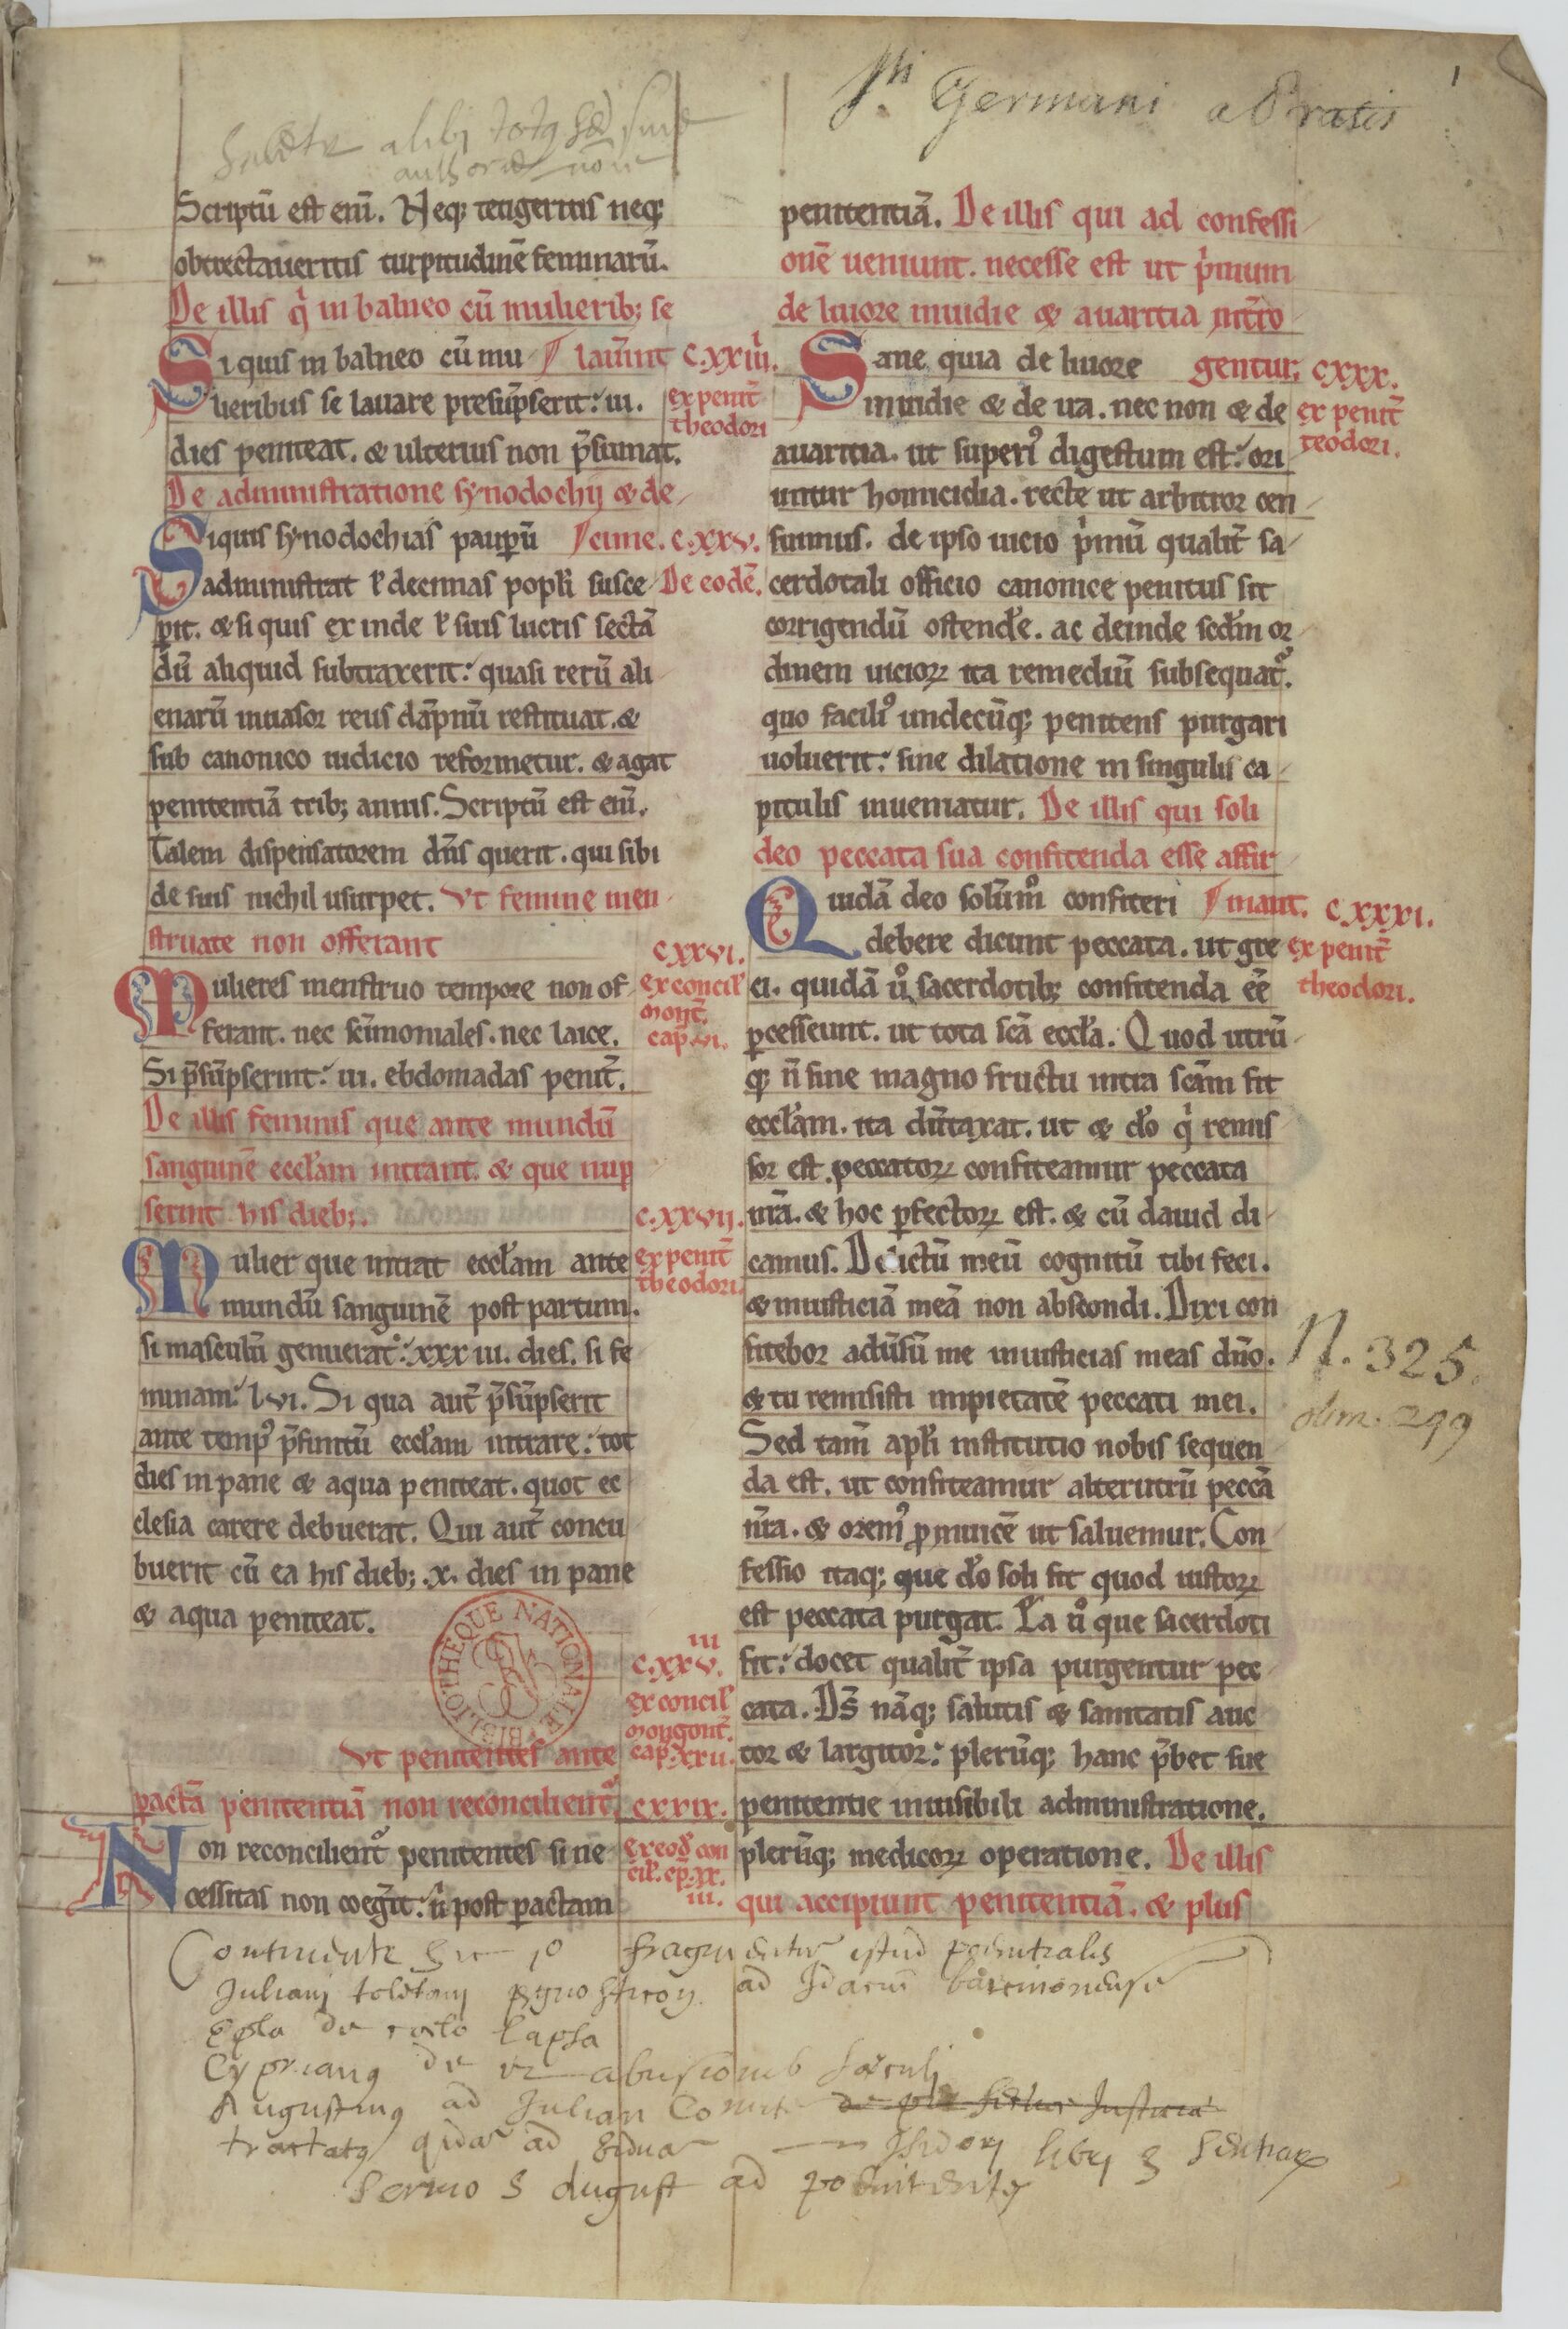 Sti Germani a Pratis
1
alibi
Scriptū est enī. Neq; tetigeritis neq;
obtrectaueritis turpitudinē feminarū.
De illis q̍ in balneo cū mulierib; se
Si quis in balneo cū mu lauūnt c.xxiiij.
lieribus se lauare presūpserit: iii. ex penit̄
theodori
dies peniteat. & ulterius non p̄sumat.
De administratione synodochij & de
Siquis synodochias paupū cime. c.xxv.
administrat ł decimas popłi susce De eodē.
pit. & si quis ex inde ł suis lucris sectā
dū aliquid subtraxerit: quasi rerū ali
enarū inuasor reus dāpnū restituat. &
sub canonico iudicio reformetur. & agat
penitentiā trib; annis. Scriptū est enī.
Talem dispensatorem dn̄s querit. qui sibi
de suis nichil usurpet. Vt femine men
struate non offerant
c.xxvi.
Mulieres menstruo tempore non of ex concił
ferant. nec sc̄imoniales. nec laice. cap.vi.
Si p̄sūpserint: iii. ebdomadas penit̄.
De illis feminis que ante mundū
sanguinē eccłam intrant. & que nup
serint his dieb;.
c.xxvii.
Mulier que intrat eccłam ante ex penit̄
theodori.
mundū sanguinē post partum.
si masculū genuerat: xxxiii. dies. si fe
minam: lvi. Si qua aut̄ p̄sūpserit
ante temp᾽ p̄finitū eccłam intrare: tot
dies in pane & aqua peniteat. quot ec
clesia carere debuerat. Qui aut̄ concu
buerit cū ea his dieb; .x. dies in pane
& aqua peniteat.
BIBLIOTHEQUE NATIONALE
iii
c.xxv.
ex concił
cap.xxii.
Vt penitentes ante
pactā penitentiā non reconcilient᾽. cxxix.
Non reconcilient᾽ penitentes si ne ex eod̄ con
cessitas non coeḡit: n̍ post pactam iii.
penitentiā. De illis qui ad confessi
onē ueniunt. necesse est ut p̍mum
de liuore inuidie & auaritia int̄ro
Sane quia de liuore gentur; cxxx.
inuidie & de ira. nec non & de ex penit̄
teodori.
auaritia. ut superi᾽ digestum est: ori
untur homicidia. recte ut arbitror cen
suimus. de ipso uicio p̍mū qualit̄ sa
cerdotali officio canonice penitus sit
corrigendū ostend̄e. ac deinde secd̄m or
dinem uicioꝝ ita remediū subsequat᾽.
quo facili᾽ undecūq; penitens purgari
uoluerit: sine dilatione in singulis ca
pitulis inueniatur. De illis qui soli
deo peccata sua confitenda esse affir
Quidā deo solūm᾽ confiteri mant. cxxxi.
debere dicunt peccata. ut gre ex penit̄
theodori.
ci. quidā u᾽ sacerdotib; confitenda eē
pcesserunt. ut tota sc̄a eccła. Quod utrū
q; n̄ sine magno fructu intra sc̄am fit
eccłam. ita dūtaxat. ut & d̄o q̍ remis
sor est peccatoꝝ confiteamur peccata
n̄ra. & hoc pfectoꝝ est. & cū dauid di
camus. Delictū meū cognitū tibi feci.
& iniusticiā meā non abscondi. Dixi con
fitebor adūsū me iniusticias meas dn̄o.
& tu remisisti impietatē peccati mei.
Sed tam̄ apłi institutio nobis sequen
da est. ut confiteamur alterutrū peccā
n̄ra. & orem᾽ p inuicē ut saluemur. Con
fessio itaq; que d̄o soli fit quod iustoꝝ
est peccata purgat. Ea u᾽ que sacerdoti
fit: docet qualit̄ ipsa purgentur pec
cata. D̄s nāq; salutis & sanitatis auc
tor & largitor: plerūq; hanc p̄bet sue
penitentie inuisibili administratione.
plerūq; medicoꝝ operatione. De illis
qui accipiunt penitentiā. & plus
N. 325.
olim. 299
Iuliani toletani
Epła de lapsa
Cyprianq de abusionib sæculi
Augustinq ad Iulian Comite
tractatq ad Isidorj librj 3
Sermo S August ad